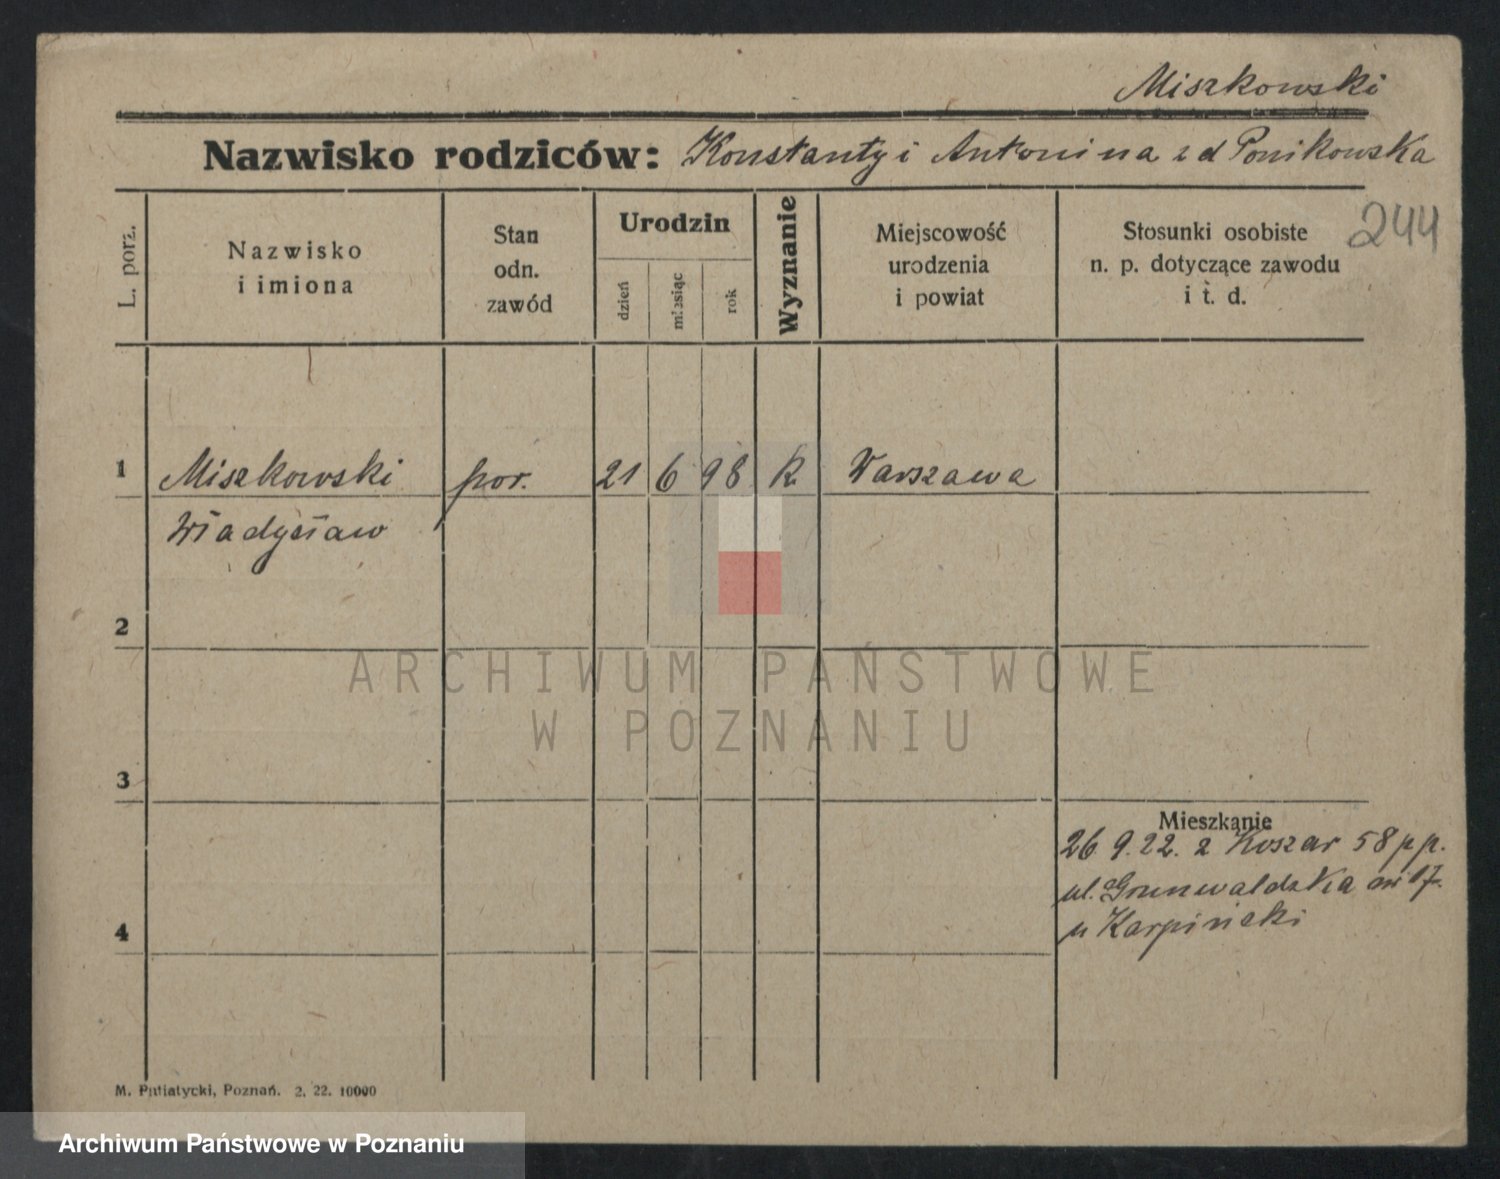 Miszkowski
Nazwisko rodziców: Konstanty i Antonina z d Ponikowska
244
L. porz.
Nazwisko
i imiona
Stan
odn.
zawód
Urodzin
dzień
miesiąc
rok
Wyznanie
Miejscowość
urodzenia
i powiat
Stosunki osobiste
n. p. dotyczące zawodu
i t. d.
1 Miszkowski por. 21 6 98 k. Warszawa
Władysław
2
3
Mieszkanie
26 9.22. z Koszar 58 p p.
ul. Grunwaldzka nr 17.
u Karpiński
4
M. Putiatycki, Poznań. 2. 22. 10000
ARCHIWUM PAŃSTWOWE
W POZNANIU
Archiwum Państwowe w Poznaniu